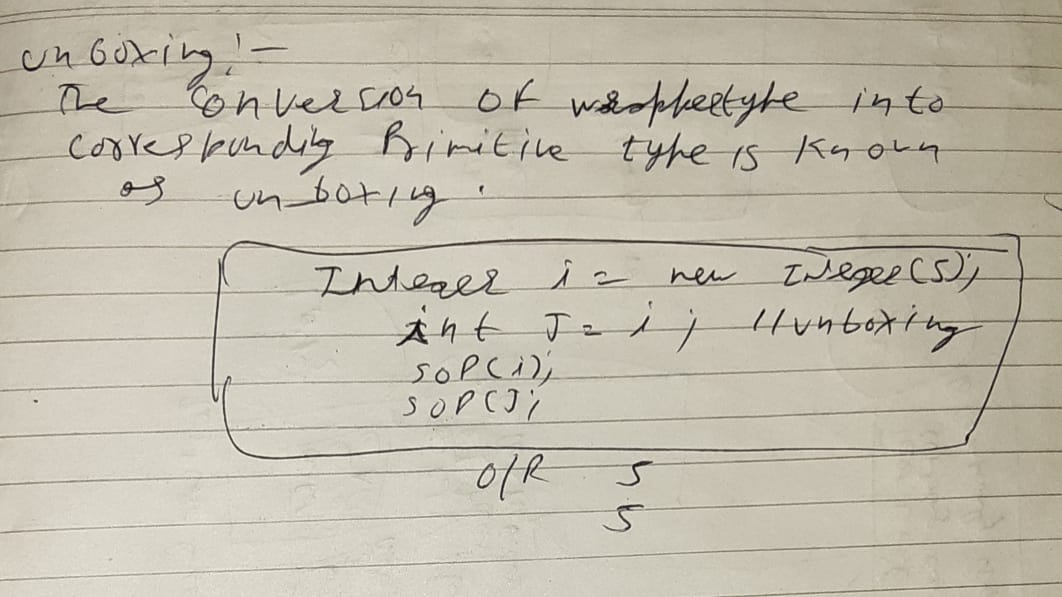 unboxing:-
The conversion of wrappertype into
corresponding Primitive type is known
as unboxing.
Integer i = new Integer(5);
int J = i; //unboxing
SOP(i);
SOP(J;
O/R 5
5